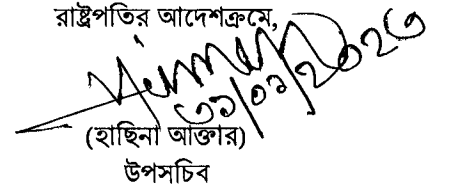 রাষ্ট্রপতির আদেশক্রমে,
৩১/০১/২০২৩
(হাছিনা আক্তার)
উপসচিব